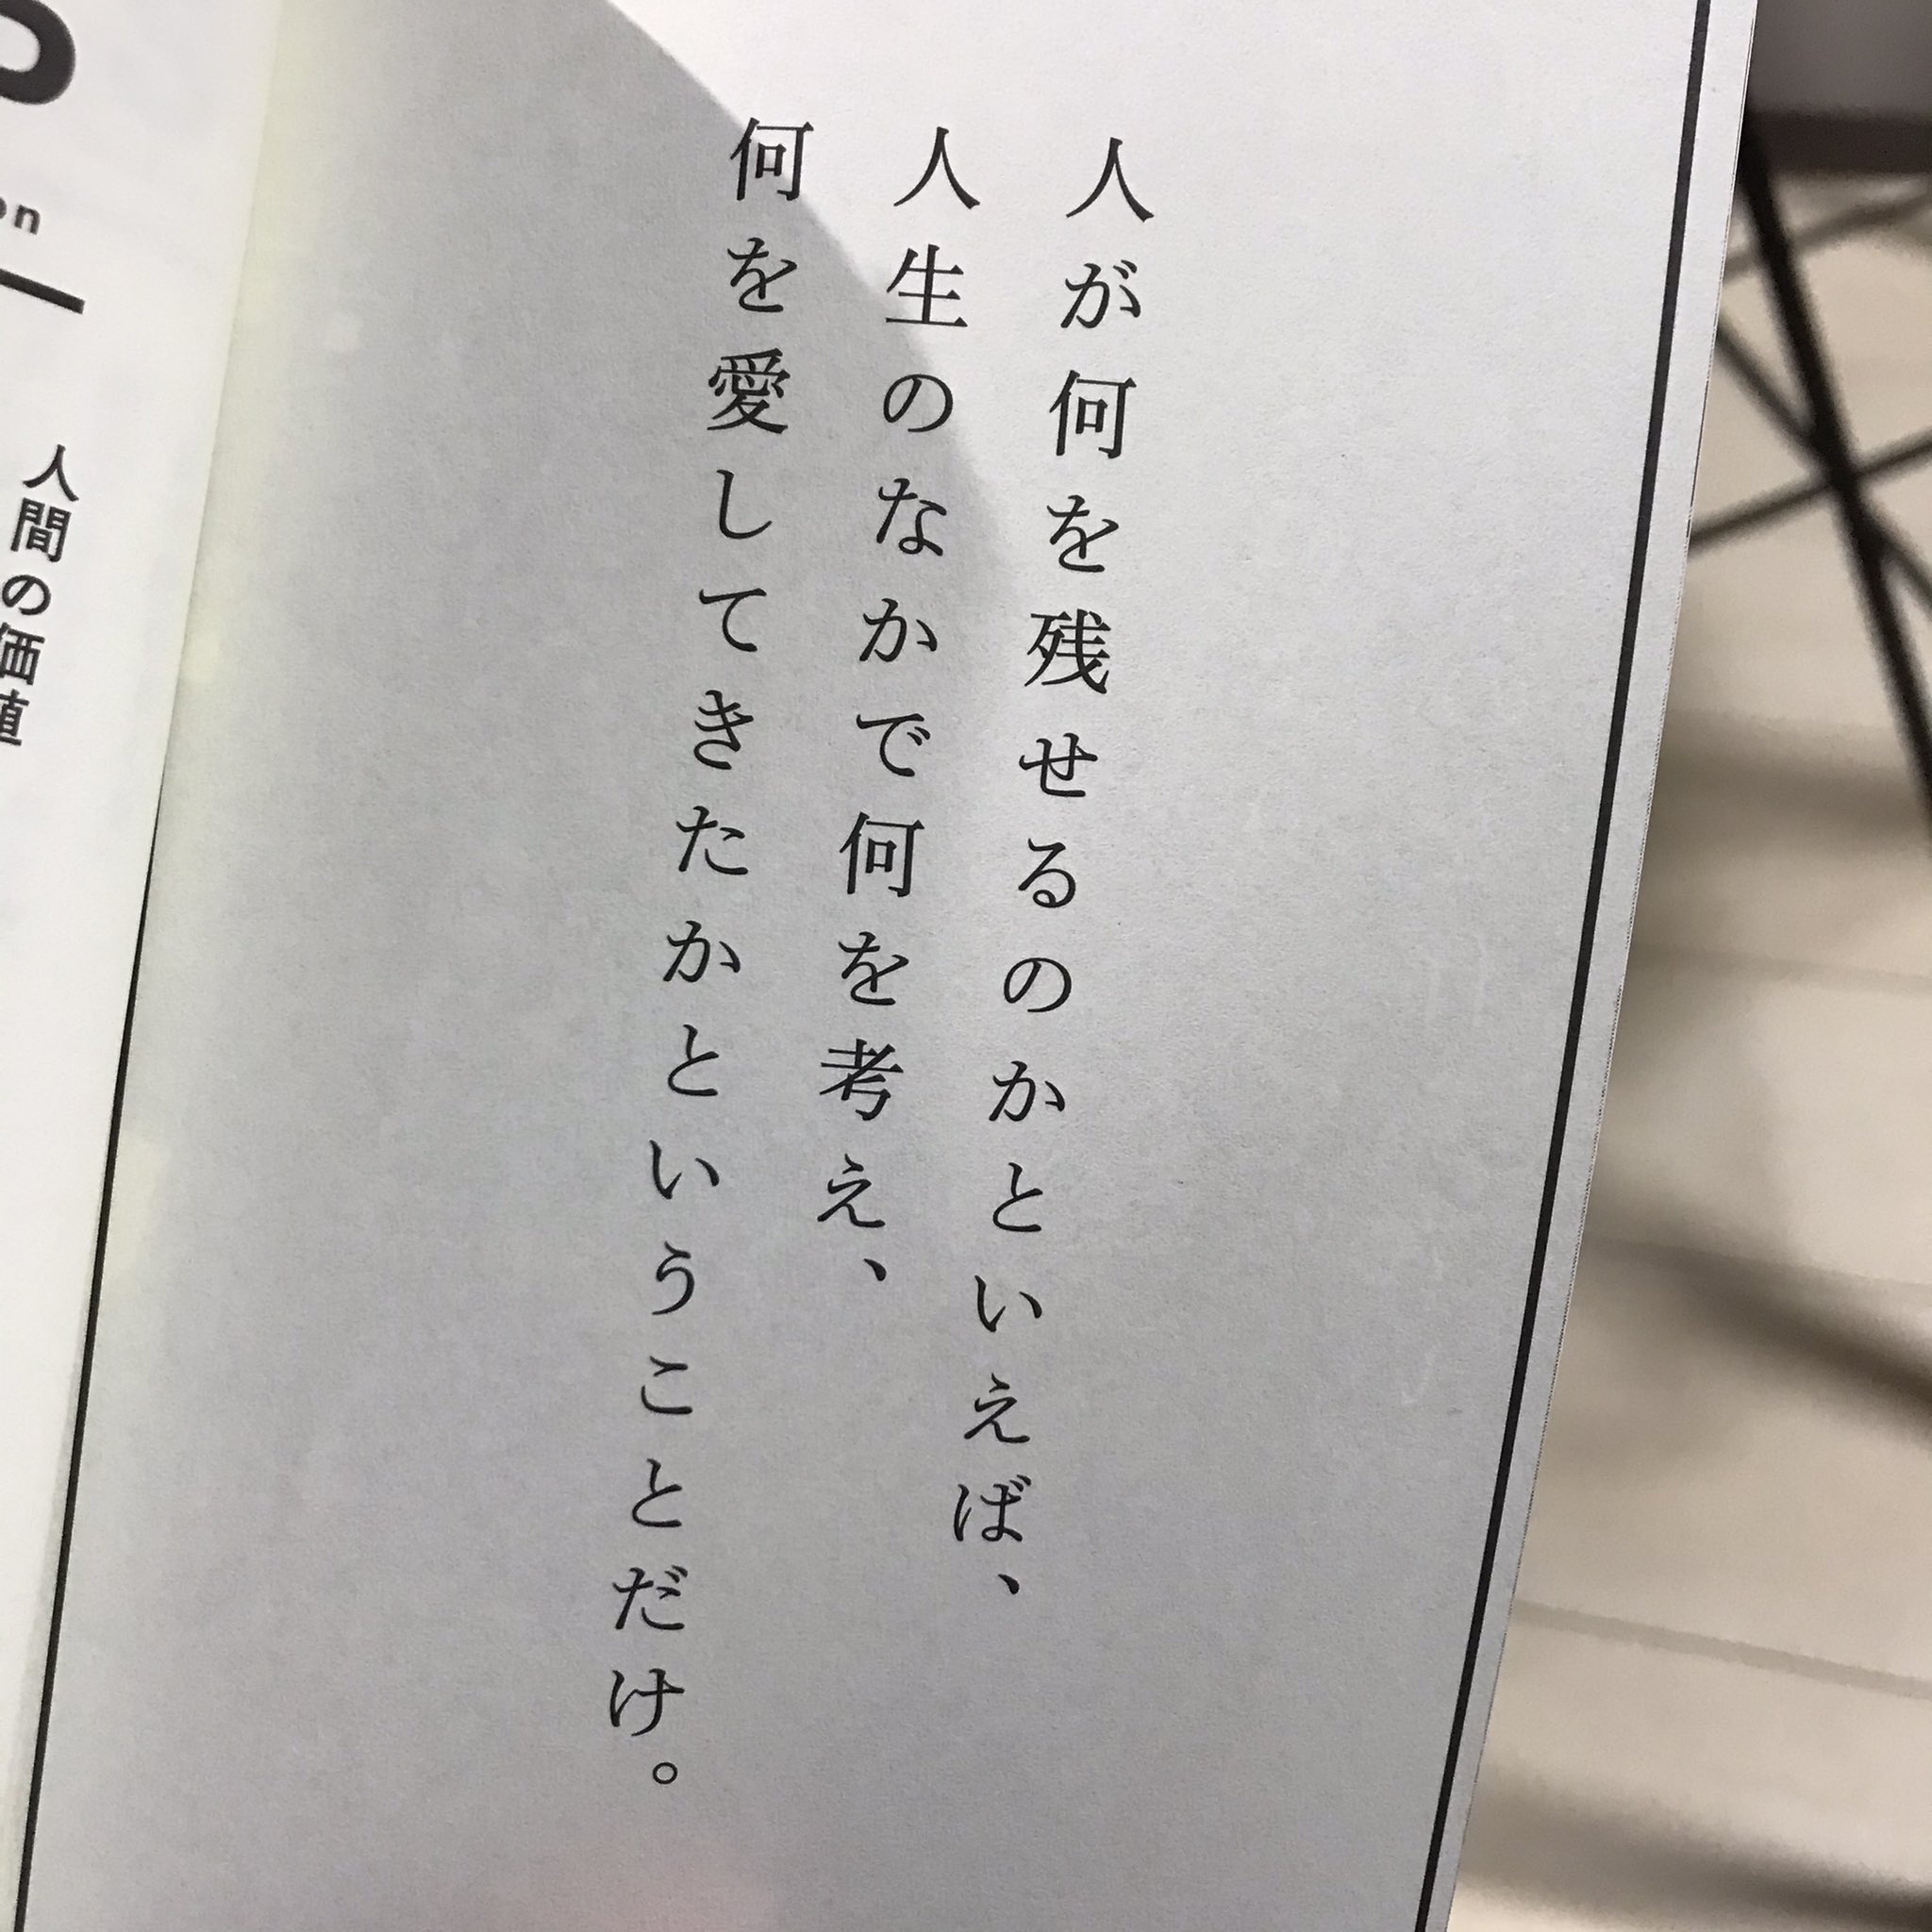 人が何を残せるのかといえば、
人生のなかで何を考え、
何を愛してきたかということだけ。
on
人間の価値